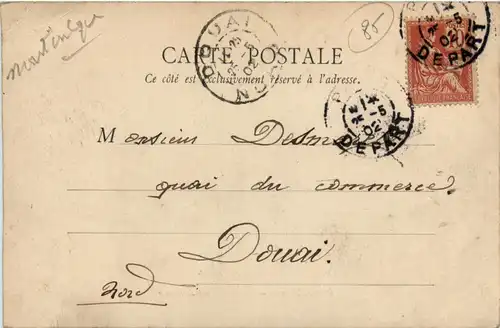 Martinique
85
CARTE POSTALE
Ce côté est exclusivement réservé à l'adresse.
DOUAI
NORD
02
DEPART
5
02
DEPART
5
02
Monsieur
quai du commerce.
Douai.
Nord